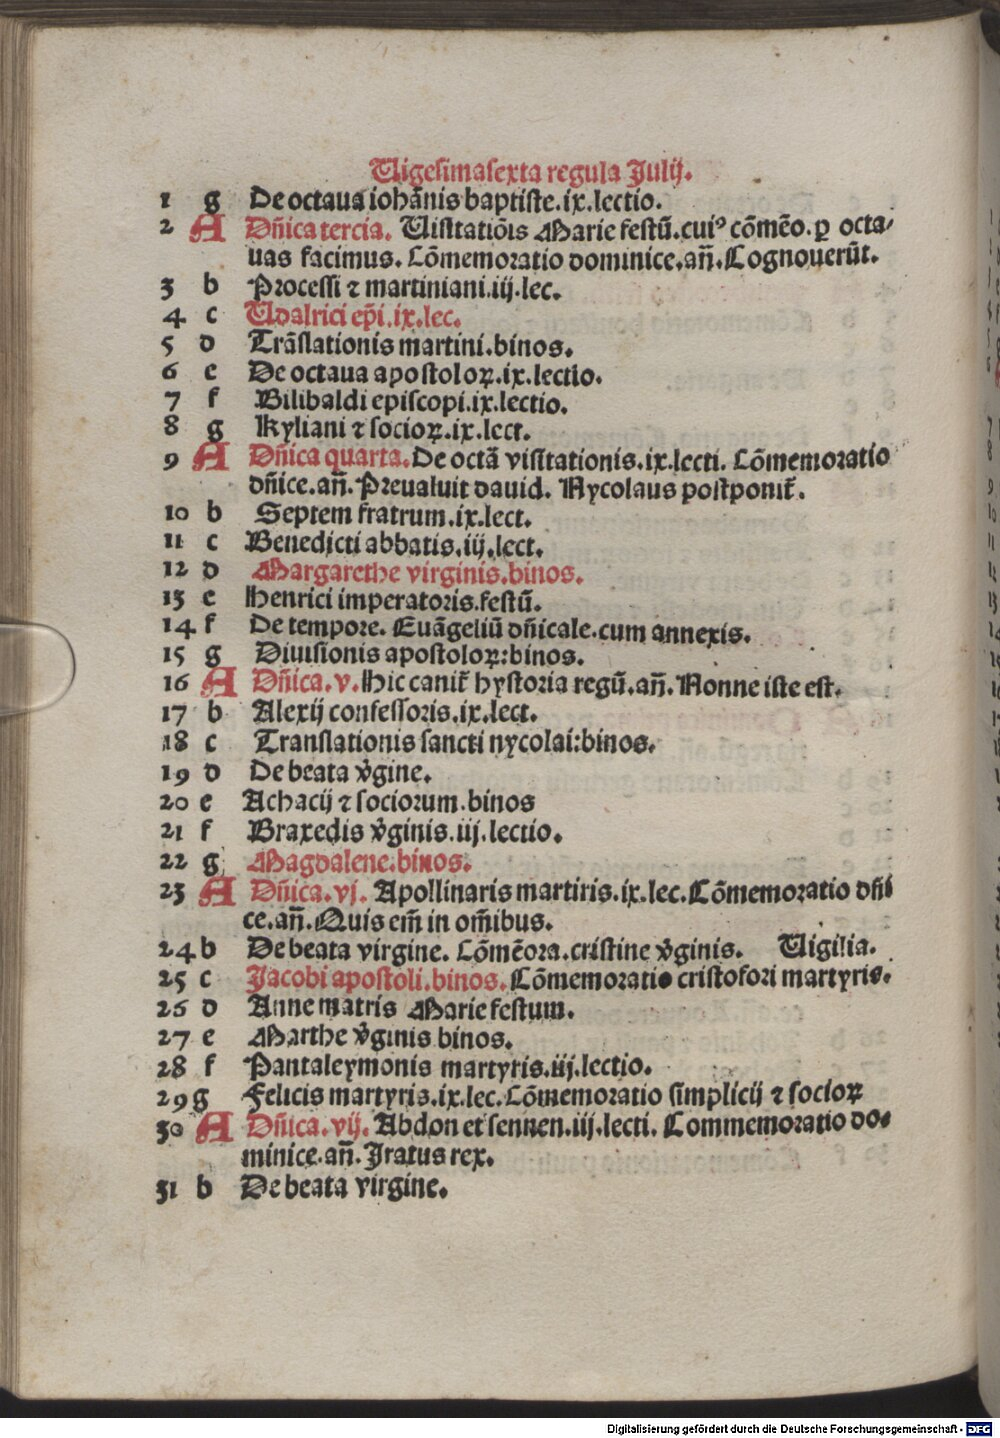 Uigesimasexta regula Julij.
1 g De octaua iohānis baptiste.ix.lectio.
2 A Dn̄ica tercia. Uisitatiōis Marie festū.cuiꝰ cōmēo.ꝑ octa⸗
uas facimus. Cōmemoratio dominice.an̄.Cognouerūt.
3 b Processi ⁊ martiniani.iij.lec.
4 c Udalrici ep̄i.ix.lec.
5 d Trāslationis martini.binos.
6 e De octaua apostoloꝝ.ix.lectio.
7 f Bilibaldi episcopi.ix.lectio.
8 g Kyliani ⁊ socioꝝ.ix.lect.
9 A Dn̄ica quarta.De octā visitationis.ix.lecti. Cōmemoratio
dn̄ice.an̄.Preualuit dauid. Nycolaus postponit᷑.
10 b Septem fratrum.ix.lect.
11 c Benedicti abbatis.iij.lect.
12 d Margarethe virginis.binos.
13 e Henrici imperatoris.festū.
14 f De tempore. Euāgeliū dn̄icale.cum annexis.
15 g Diuisionis apostoloꝝ:binos.
16 A Dn̄ica.v.Hic canit᷑ hystoria regū.an̄.Nonne iste est.
17 b Alexij confessoris.ix.lect.
18 c Translationis sancti nycolai:binos.
19 d De beata v̓gine.
20 e Achacij ⁊ sociorum.binos
21 f Braxedis v̓ginis.iij.lectio.
22 g Magdalene.binos.
23 A Dn̄ica.vj. Apollinaris martiris.ix.lec.Cōmemoratio dn̄i
ce.an̄.Quis em̄ in om̄ibus.
24 b De beata virgine. Cōmēora.cristine v̓ginis. Uigilia.
25 c Jacobi apostoli.binos.Cōmemoratio cristofori martyris.
26 d Anne matris Marie festum.
27 e Marthe v̓ginis binos.
28 f Pantaleymonis martyris.iij.lectio.
29 g Felicis martyris.ix.lec.Cōmemoratio simplicij ⁊ socioꝝ
30 A Dn̄ica.vij.Abdon et sennen.iij.lecti. Commemoratio do⸗
minice.an̄.Iratus rex.
31 b De beata virgine.
Digitalisierung gefördert durch die Deutsche Forschungsgemeinschaft - DFG